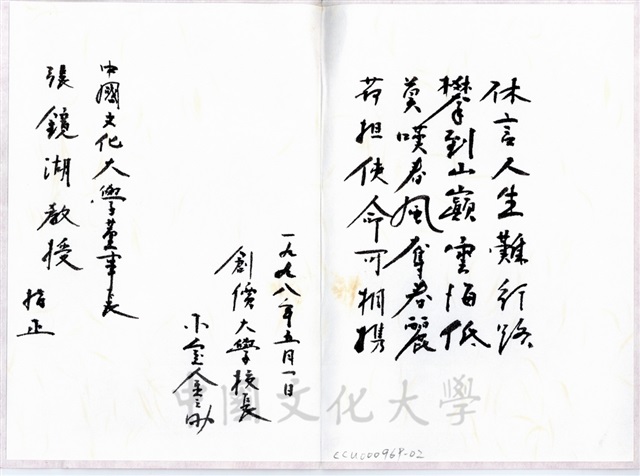 休言人生難行路
攀到山巔雲低
莫嘆春風奪春麗
荷担使命可相携
一九九八年五月一日
創價大學校長
小室金之助
中國文化大學董事長
張鏡湖教授 指正
中國文化大學
CCU000964-02